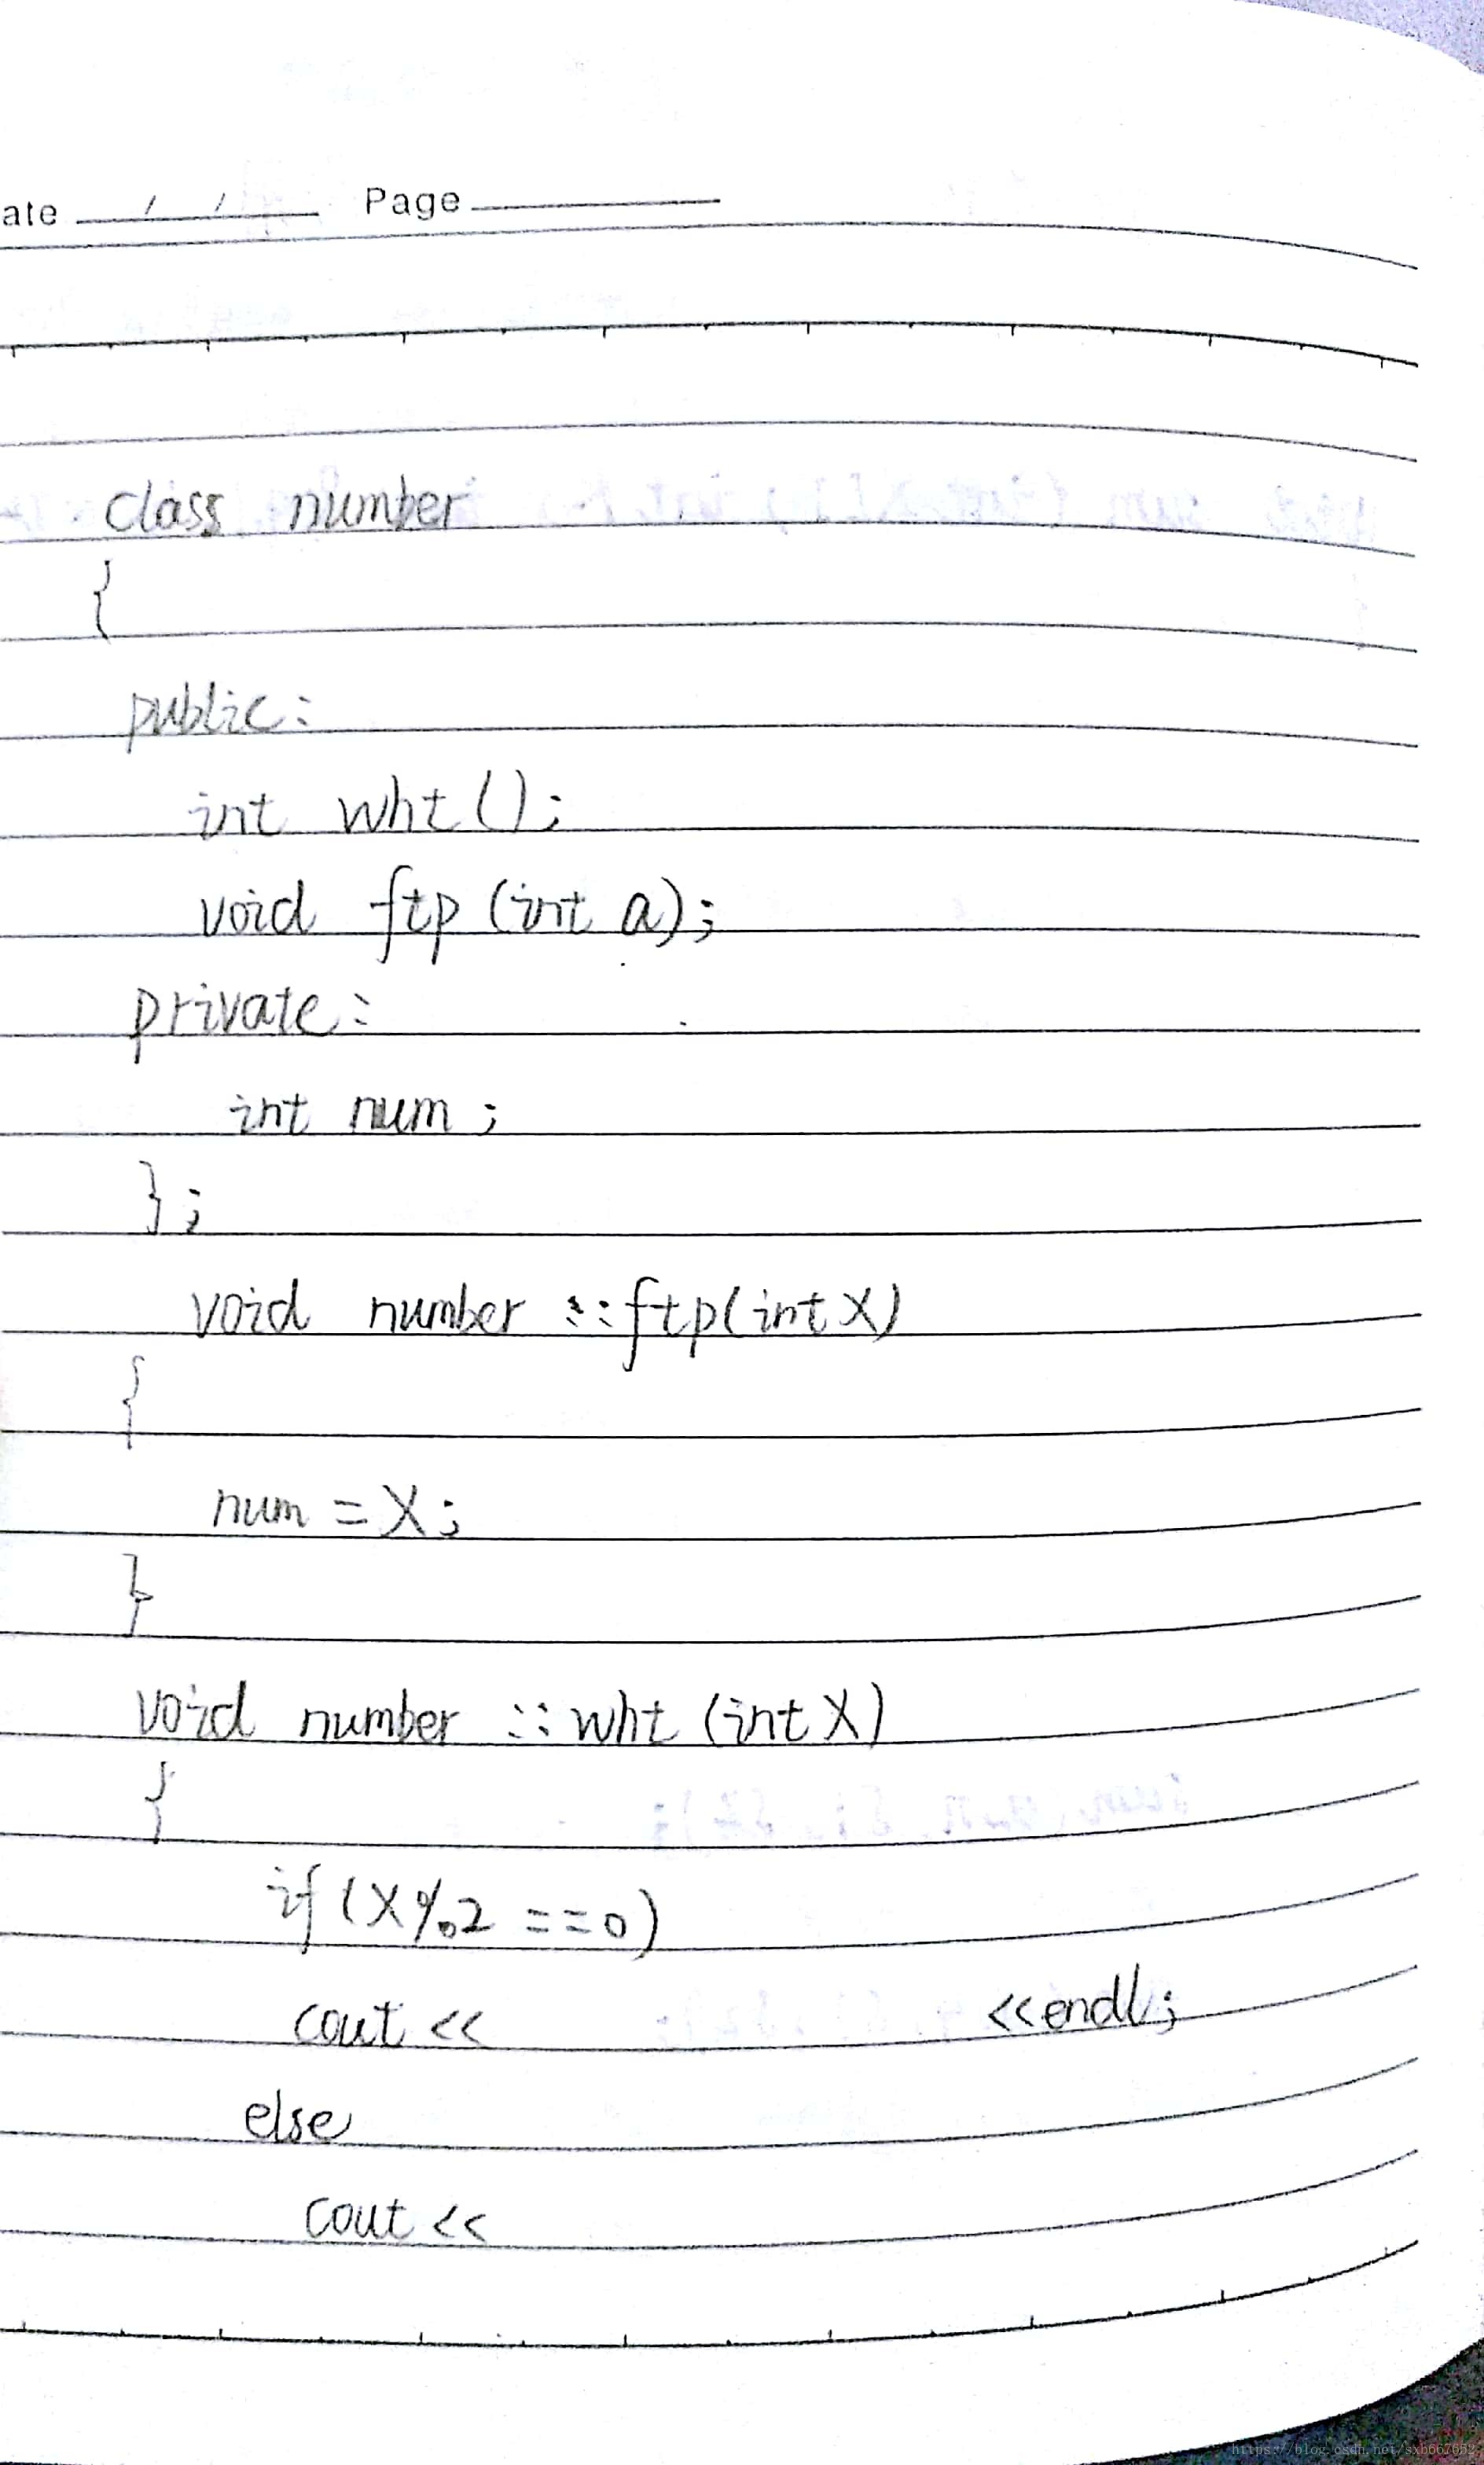 ate / / Page
class number
{
public:
int wht();
void ftp(int a);
private:
int num;
};
void number ::ftp(int X)
{
num = X;
}
void number ::wht (int X)
{
if (X%2 ==0)
cout << <<endl;
else
cout <<
https://blog.csdn.net/sxb667652